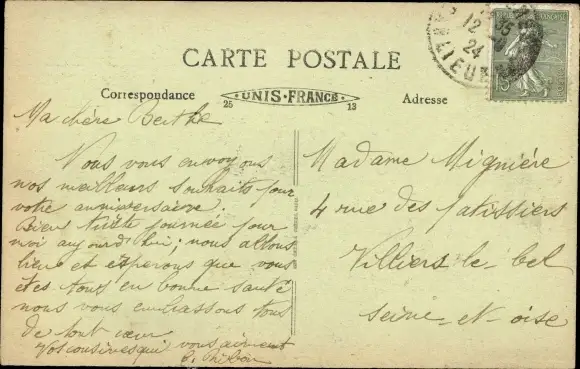 CARTE POSTALE
Correspondance
25 UNIS-FRANCE 13
Adresse
12
24
LIEU
FRANÇAISE
Ma chère Berthe
Vous vous envoyons
nos meilleurs souhaits pour
votre anniversaire.
Bien triste journée pour
moi aujourd'hui; nous allons
bien et espérons que vous
etes tous en bonne santé
nous vous embrassons tous
de tout cœur
Vos cousines qui vous aiment
Madame Mignière
4 rue des patissiers
Villiers le bel
Seine-et-oise